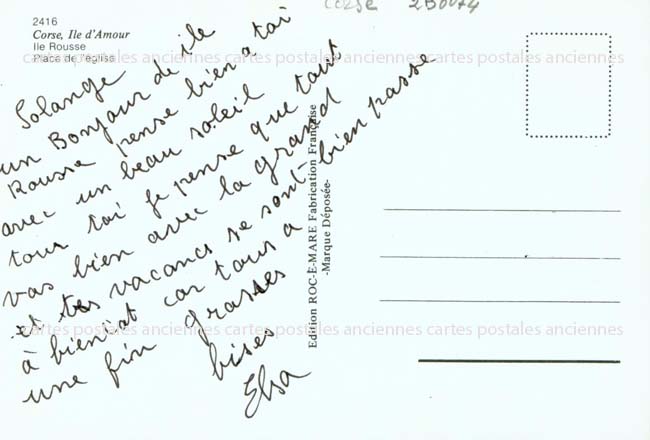 corse 2B0074
2416
Corse, Ile d'Amour
Ile Rousse
Place de l'église
Solange
un Bonjour de ile
Rousse pense bien a toi
avec un beau soleil
tous toi je pense que tout
vas bien avec la grand
et tes vacancs se sont bien passe
à bientat car tous a
une fin grasses
bises
Elsa
Edition ROC-E-MARE Fabrication Française
-Marque Déposée-
cartes postales anciennes cartes postales anciennes cartes postales anciennes
cartes postales anciennes cartes postales anciennes cartes postales anciennes